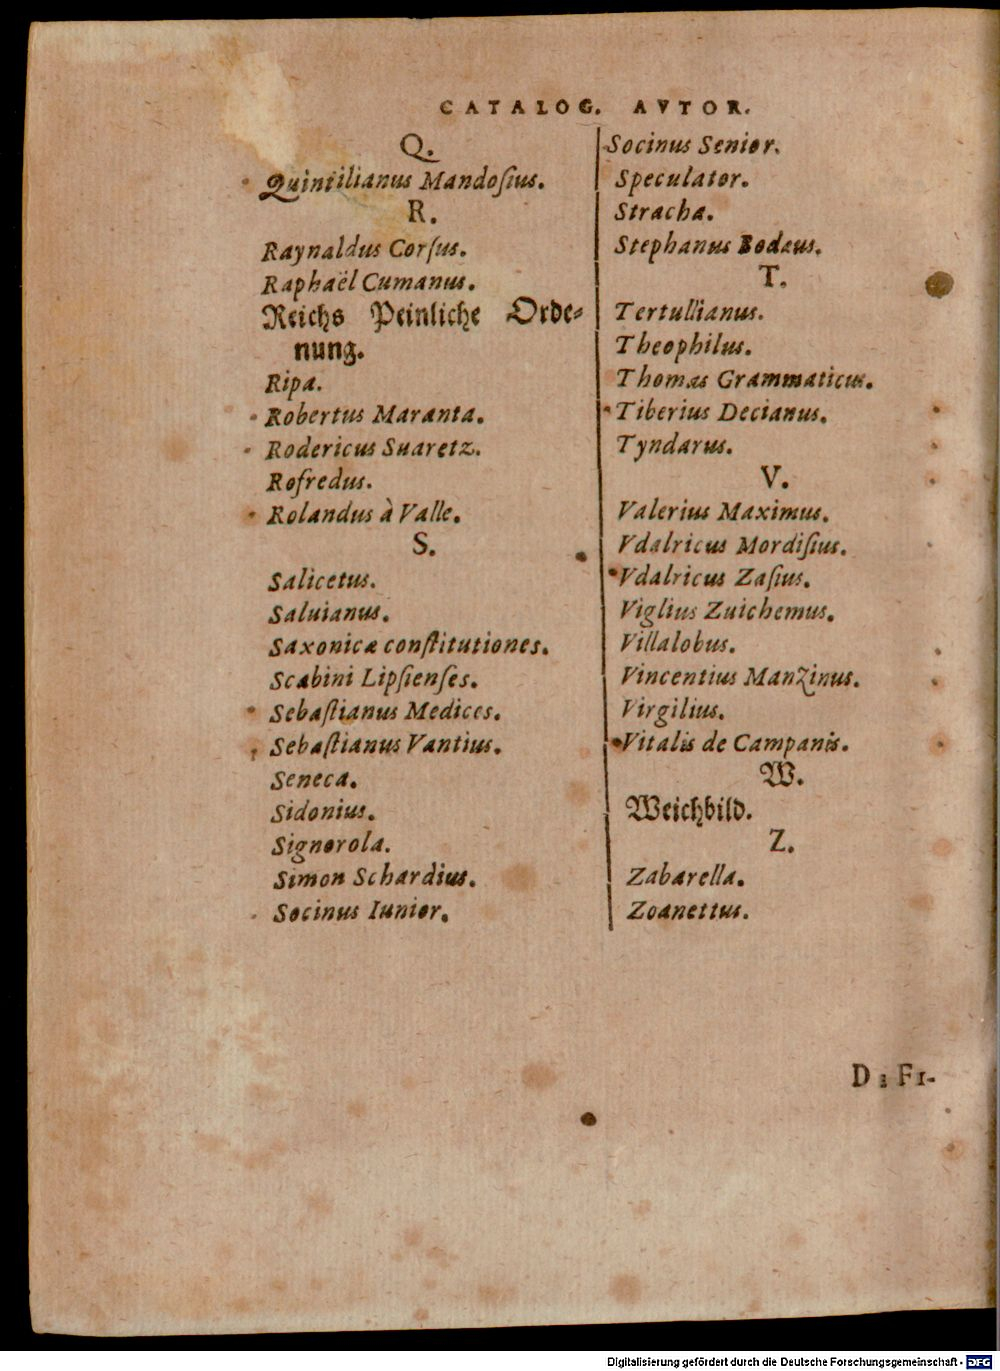 CATALOG. AVTOR.
Q.
Quintilianus Mandoſius.
R.
Raynaldus Corſus.
Raphaël Cumanus.
Reichs Peinliche Orde-
nung.
Ripa.
Robertus Maranta.
Rodericus Suaretz.
Rofredus.
Rolandus à Valle.
S.
Salicetus.
Saluianus.
Saxonicæ conſtitutiones.
Scabini Lipſienſes.
Sebaſtianus Medices.
Sebaſtianus Vantius.
Seneca.
Sidonius.
Signorola.
Simon Schardius.
Socinus Iunior.
Socinus Senior.
Speculator.
Stracha.
Stephanus Bodæus.
T.
Tertullianus.
Theophilus.
Thomas Grammaticus.
Tiberius Decianus.
Tyndarus.
V.
Valerius Maximus.
Vdalricus Mordiſius.
Vdalricus Zaſius.
Viglius Zuichemus.
Villalobus.
Vincentius Manzinus.
Virgilius.
Vitalis de Campanis.
W.
Weichbild.
Z.
Zabarella.
Zoanettus.
DeFi-
Digitalisierung gefördert durch die Deutsche Forschungsgemeinschaft - DFG